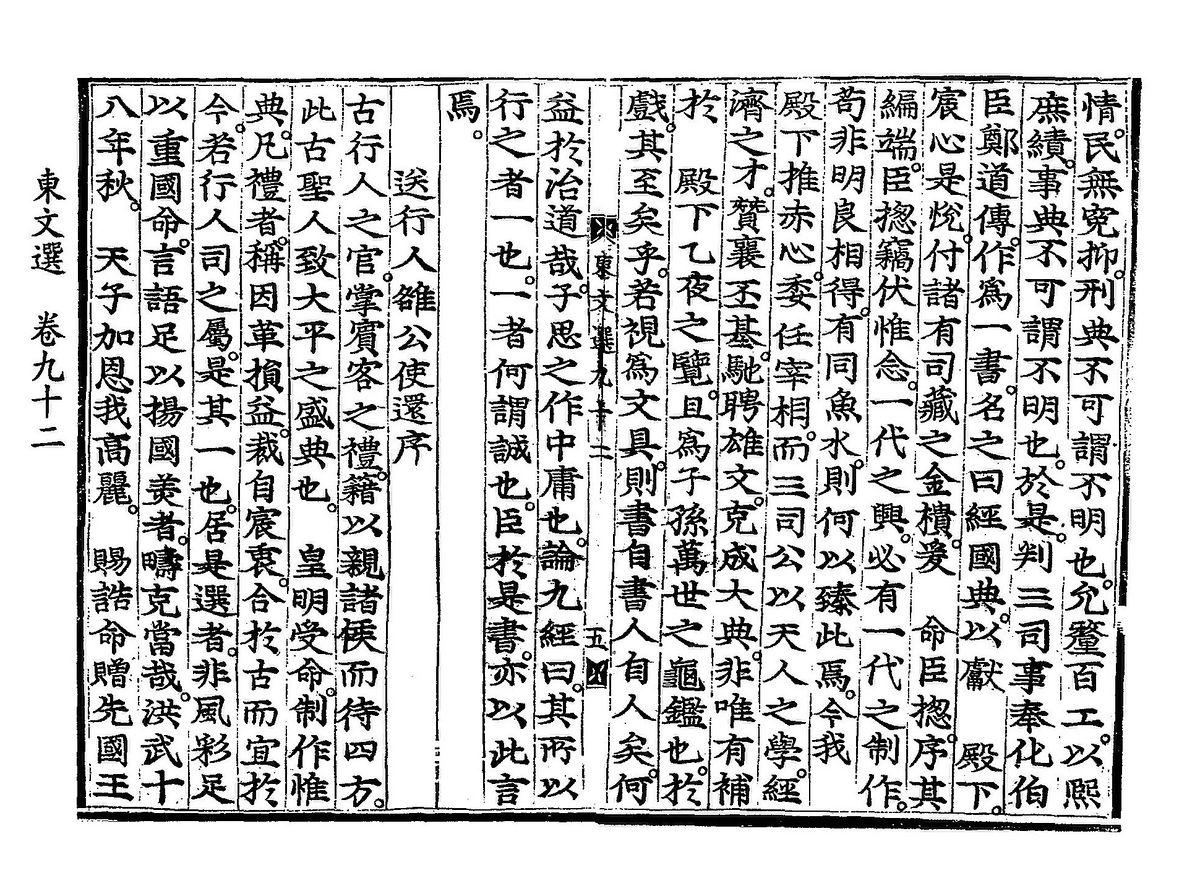 情。民無寃抑。刑典不可謂不明也。允釐百工。以熈
庶績。事典不可謂不明也。於是。判三司事奉化伯
臣鄭道傳。作爲一書。名之曰經國典。以獻　殿下。
宸心是悅。付諸有司。藏之金樻。爰　命臣揔。序其
編端。臣揔竊伏惟念。一代之興。必有一代之制作。
苟非明良相得。有同魚水。則何以臻此焉。今我
殿下推赤心。委任宰相。而三司公以天人之學。經
濟之才。贊襄丕基。馳聘雄文。克成大典。非唯有補
於　殿下乙夜之覽。且爲子孫萬世之龜鑑也。於
戲。其至矣乎。若視爲文具。則書自書人自人矣。何
東文選九十二　五
益於治道哉。子思之作中庸也。論九經曰。其所以
行之者一也。一者何謂誠也。臣於是書。亦以此言
焉。
送行人雒公使還序
古行人之官。掌賓客之禮。籍以親諸侯而待四方。
此古聖人致大平之盛典也。　皇明受命。制作惟
典。凡禮者。稱因革損益。裁自宸衷。合於古而宜於
今。若行人司之屬。是其一也。居是選者。非風彩足
以重國命。言語足以揚國美者。疇克當哉。洪武十
八年秋。　天子加恩我高麗。　賜誥命贈先國王
東文選　卷九十二